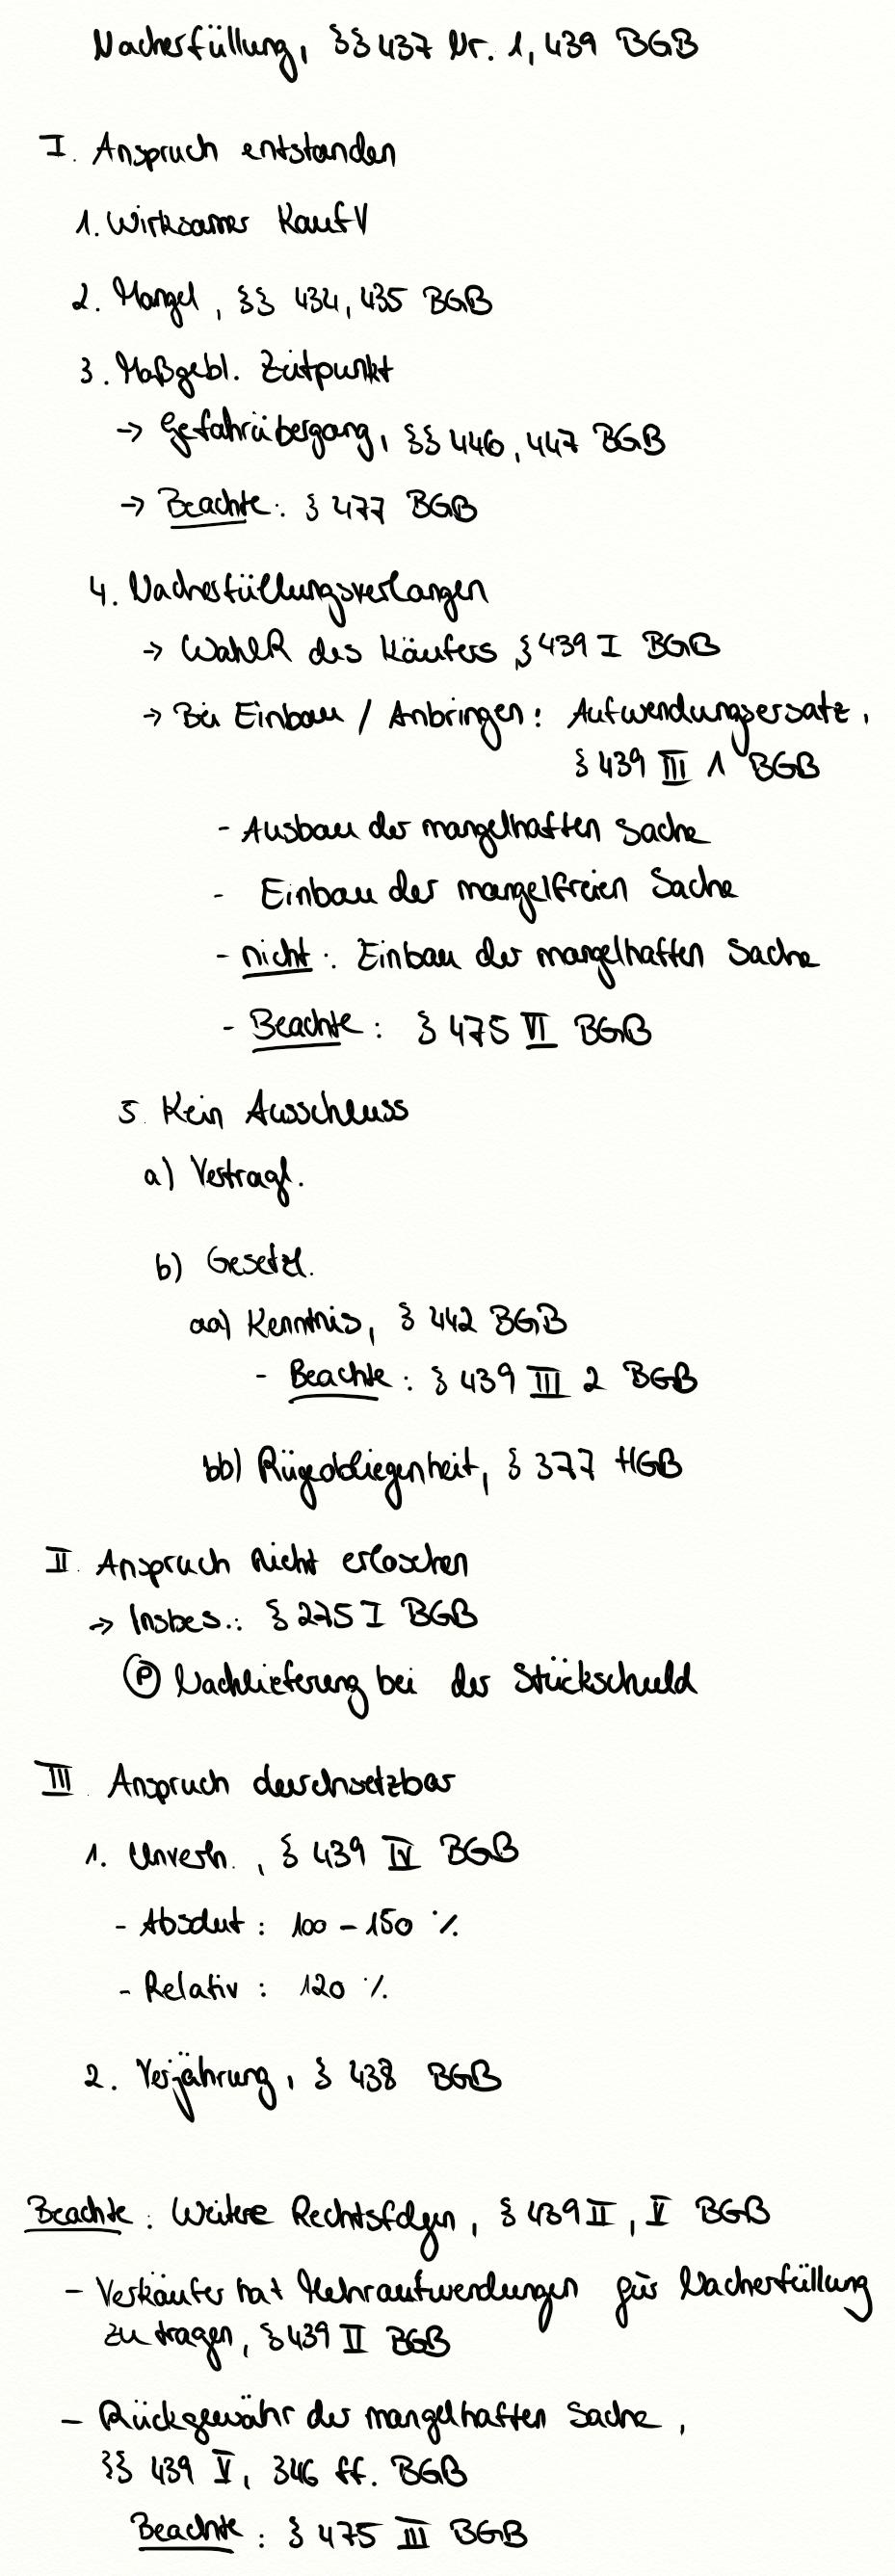 Nacherfüllung, §§ 437 Nr. 1, 439 BGB
I. Anspruch entstanden
1. Wirksamer KaufV
2. Mangel, §§ 434, 435 BGB
3. Maßgebl. Zeitpunkt
→ Gefahrübergang, §§ 446, 447 BGB
→ Beachte: § 477 BGB
4. Nacherfüllungsverlangen
→ WahlR des Käufers § 439 I BGB
→ Bei Einbau / Anbringen: Aufwendungsersatz,
§ 439 III 1 BGB
- Ausbau der mangelhaften Sache
- Einbau der mangelfreien Sache
- nicht: Einbau der mangelhaften Sache
- Beachte: § 475 VI BGB
5. Kein Ausschluss
a) Vertragl.
b) Gesetzl.
aa) Kenntnis, § 442 BGB
- Beachte: § 439 III 2 BGB
bb) Rügeobliegenheit, § 377 HGB
II. Anspruch nicht erloschen
→ Insbes.: § 275 I BGB
Ⓟ Nachlieferung bei der Stückschuld
III. Anspruch durchsetzbar
1. Unverh., § 439 IV BGB
- Absolut: 100 - 150 %
- Relativ: 120 %
2. Verjährung, § 438 BGB
Beachte: Weitere Rechtsfolgen, § 439 II, V BGB
- Verkäufer hat Mehraufwendungen für Nacherfüllung
zu tragen, § 439 II BGB
- Rückgewähr der mangelhaften Sache,
§§ 439 V, 346 ff. BGB
Beachte: § 475 III BGB